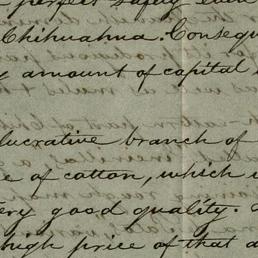 perfect safety even
Chihuahua. Consequ
amount of capital
lucrative branch of
e of cotton, which i
ery good quality.
high price of that a